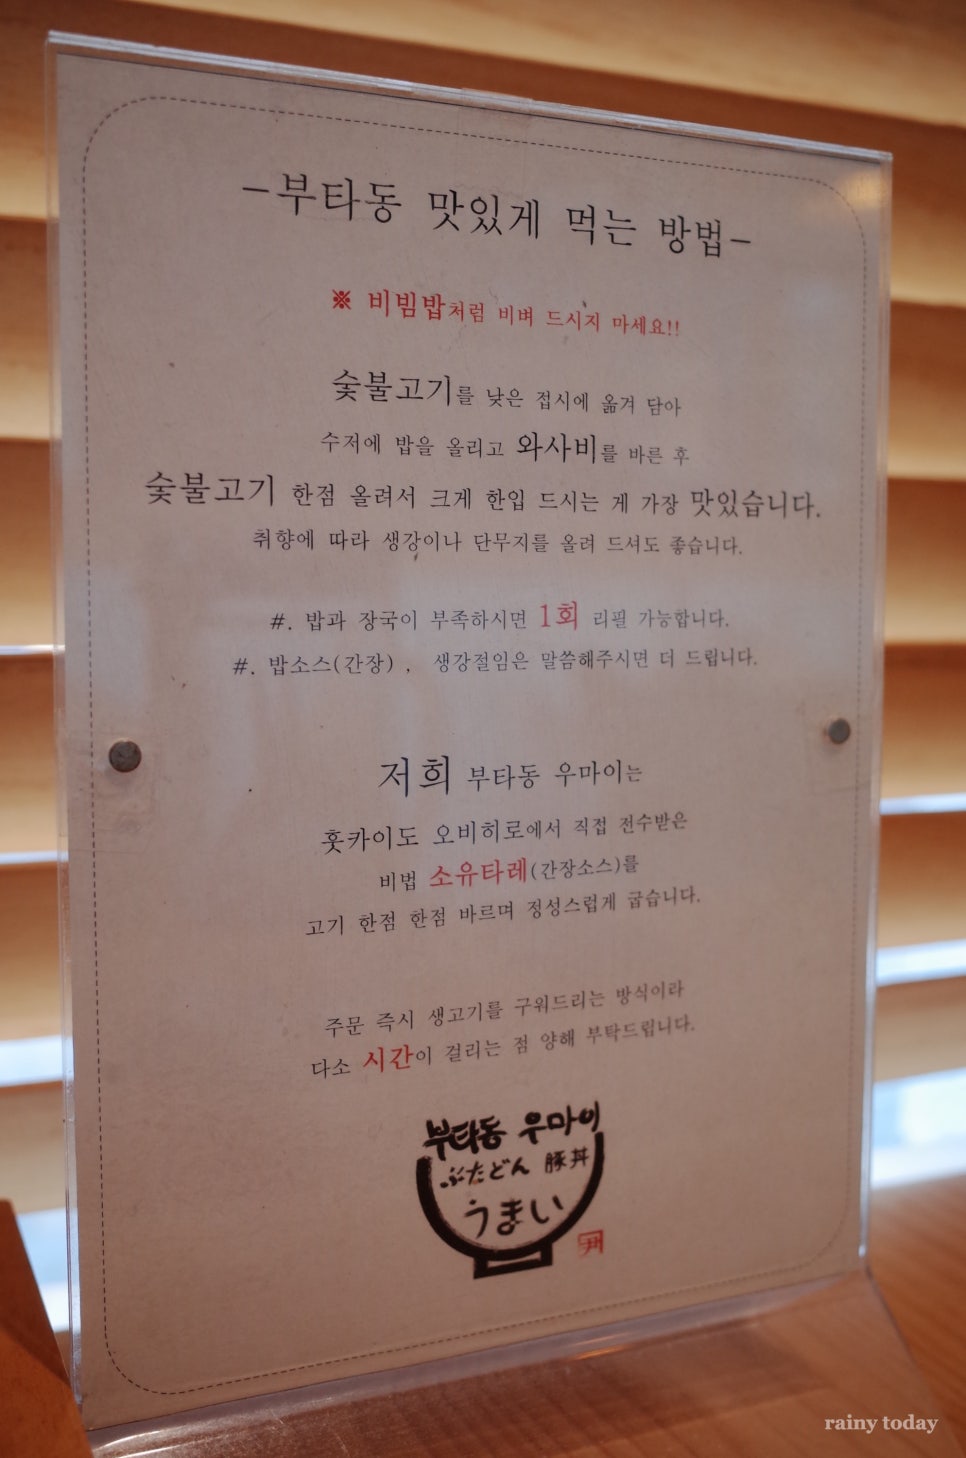 -부타동 맛있게 먹는 방법-
※ 비빔밥처럼 비벼 드시지 마세요!!
숯불고기를 낮은 접시에 옮겨 담아
수저에 밥을 올리고 와사비를 바른 후
숯불고기 한점 올려서 크게 한입 드시는 게 가장 맛있습니다.
취향에 따라 생강이나 단무지를 올려 드셔도 좋습니다.
#. 밥과 장국이 부족하시면 1회 리필 가능합니다.
#. 밥소스(간장) , 생강절임은 말씀해주시면 더 드립니다.
저희 부타동 우마이는
홋카이도 오비히로에서 직접 전수받은
비법 소유타레(간장소스)를
고기 한점 한점 바르며 정성스럽게 굽습니다.
주문 즉시 생고기를 구워드리는 방식이라
다소 시간이 걸리는 점 양해 부탁드립니다.
부타동 우마이
ぶたどん 豚丼
うまい
rainy today